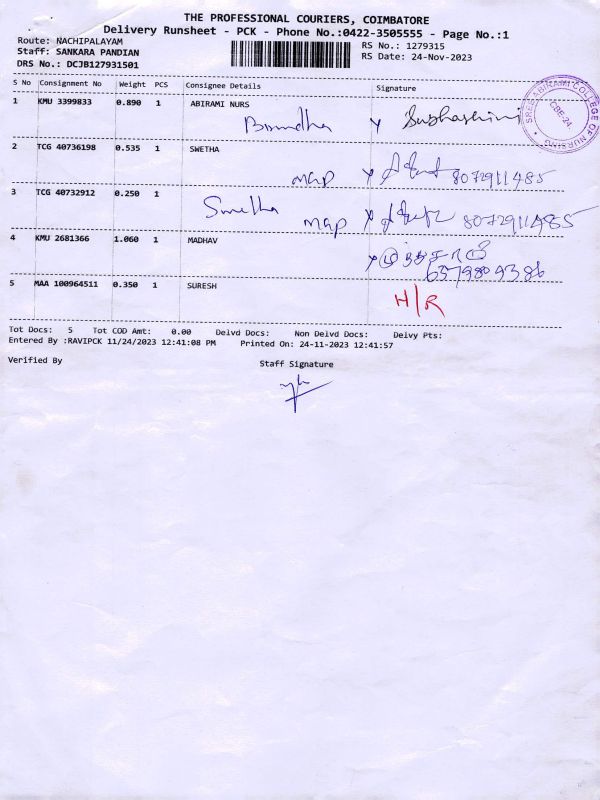 THE PROFESSIONAL COURIERS, COIMBATORE
Delivery Runsheet - PCK - Phone No.:0422-3505555 - Page No.:1
Route: NACHIPALAYAM
RS No.: 1279315
Staff: SANKARA PANDIAN
RS Date: 24-Nov-2023
DRS No.: DCJB127931501
S No Consignment No Weight PCS Consignee Details Signature
1 KMU 3399833 0.890 1 ABIRAMI NURS
Brundha x Subhashini
SREE ABIRAMI COLLEGE OF NURSING
CBE-24.
2 TCG 40736198 0.535 1 SWETHA
map x 8072911485
3 TCG 40732912 0.250 1
Swetha map x 8072911485
4 KMU 2681366 1.060 1 MADHAV
x
6379809386
5 MAA 100964511 0.350 1 SURESH
H/R
Tot Docs: 5 Tot COD Amt: 0.00 Delvd Docs: Non Delvd Docs: Delvy Pts:
Entered By :RAVIPCK 11/24/2023 12:41:08 PM Printed On: 24-11-2023 12:41:57
Verified By Staff Signature